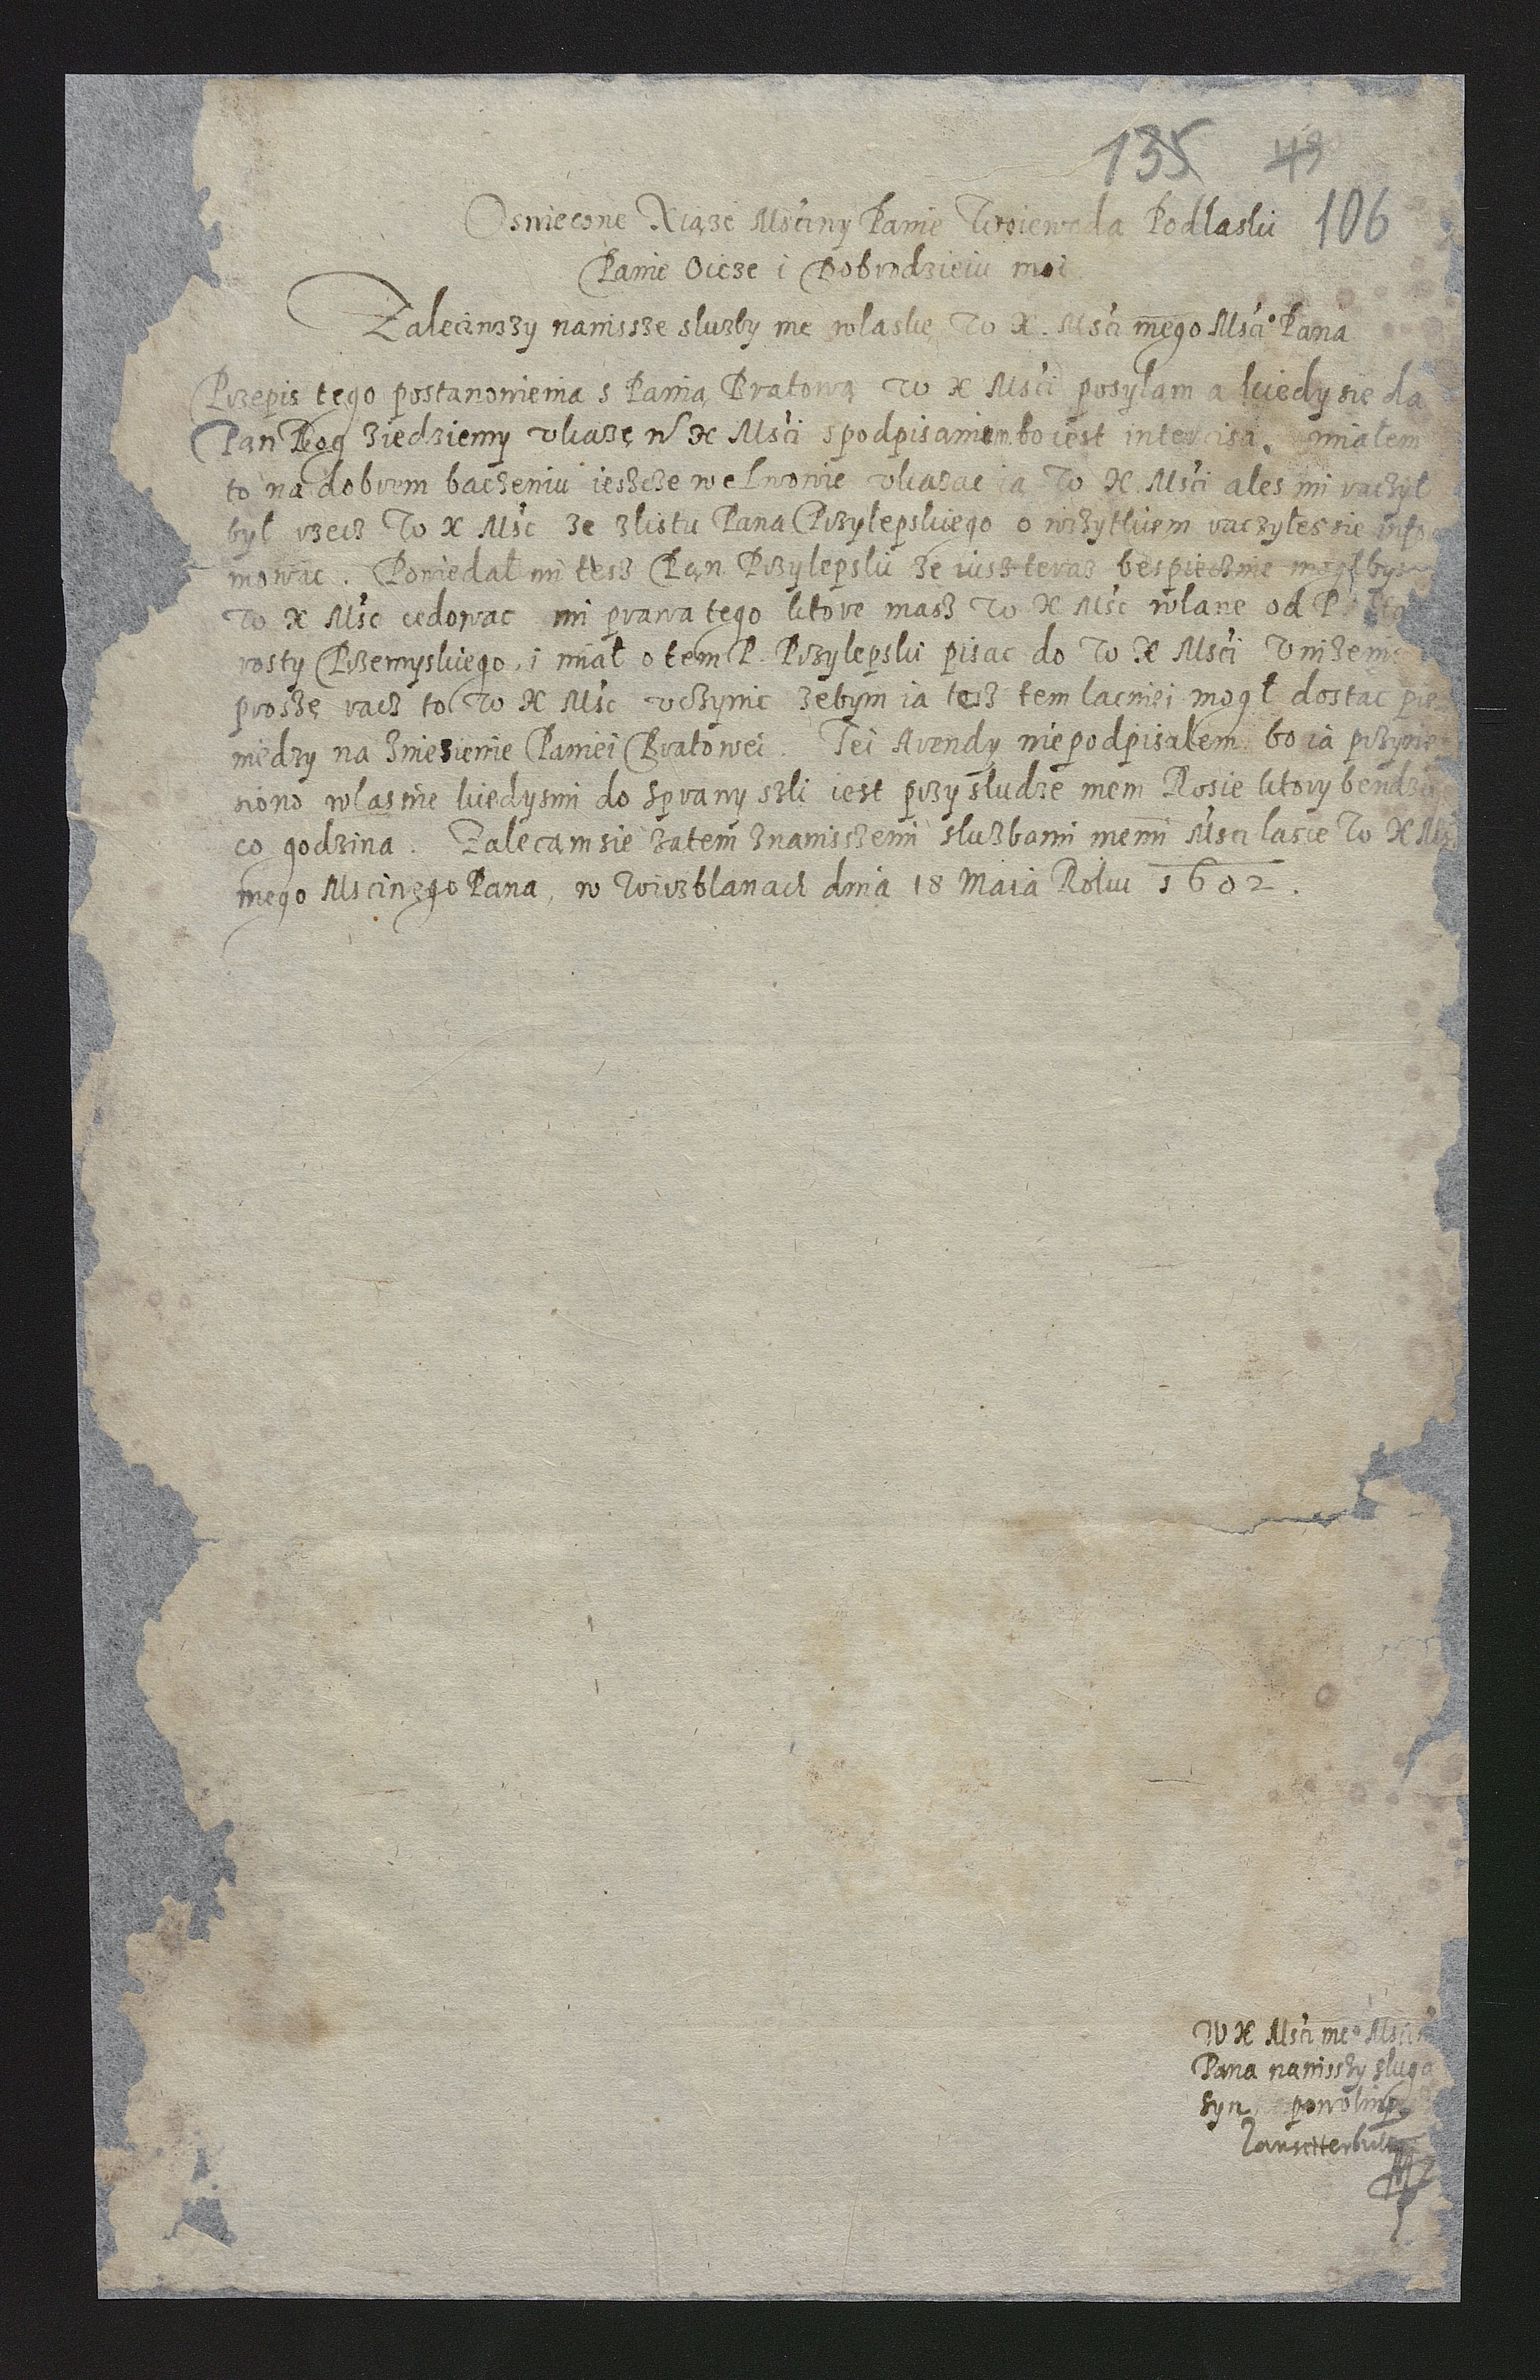 135 49
106
Oswiecone Xiąże Mściwy Panie Woiewoda Podlaski
Panie Oicze i Dobrodzieiu moi
Zaleciwszy naniszsze służby me wlaskę W X. Mści mego Mści° Pana
Przepis tego postanowienia s Panią Bratową W X Mści posyłam a kiedy sie da
Pan Bog ziedziemy vkażę W X Mści spodpisaniem bo iest intercisa, miałem
to na dobrem baczeniu ieszcze we Lwowie vkazac ią W X. Mści ales mi raczył
był rzecz W X Mśc że zlistu Pana Przylepskiego o wszytkiem raczyłes sie
mowac. Powiedał mi tesz Pan Przylepski że iusz teraz bespiecznie mogłbys
W X Mśc cedowac mi prawa tego ktore masz W X Mśc wlane od P
rosty Przemyskiego, i miał o tem P. Przylepski pisac do W X Mści Vniżenie
proszę racz to W X Mśc vczynic żebym ia tesz tem lacniei mogł dostac pie
niedzy na zniesienie Paniei Bratowei. Tei Arendy niepodpisałem bo ią przynie
siono wlasnie kiedysmi do sprawy szli iest przy słudze mem Rosie ktory bendzie
co godzina. Zalecam sie zatem znaniszszemi służbami memi Mści lasce W X Mści
mego Mściwego Pana, w Wirzblanach dnia 18 Maia Roku 1602.
W X Mści me° Mści
Pana naniszszy sluga
syn powolny